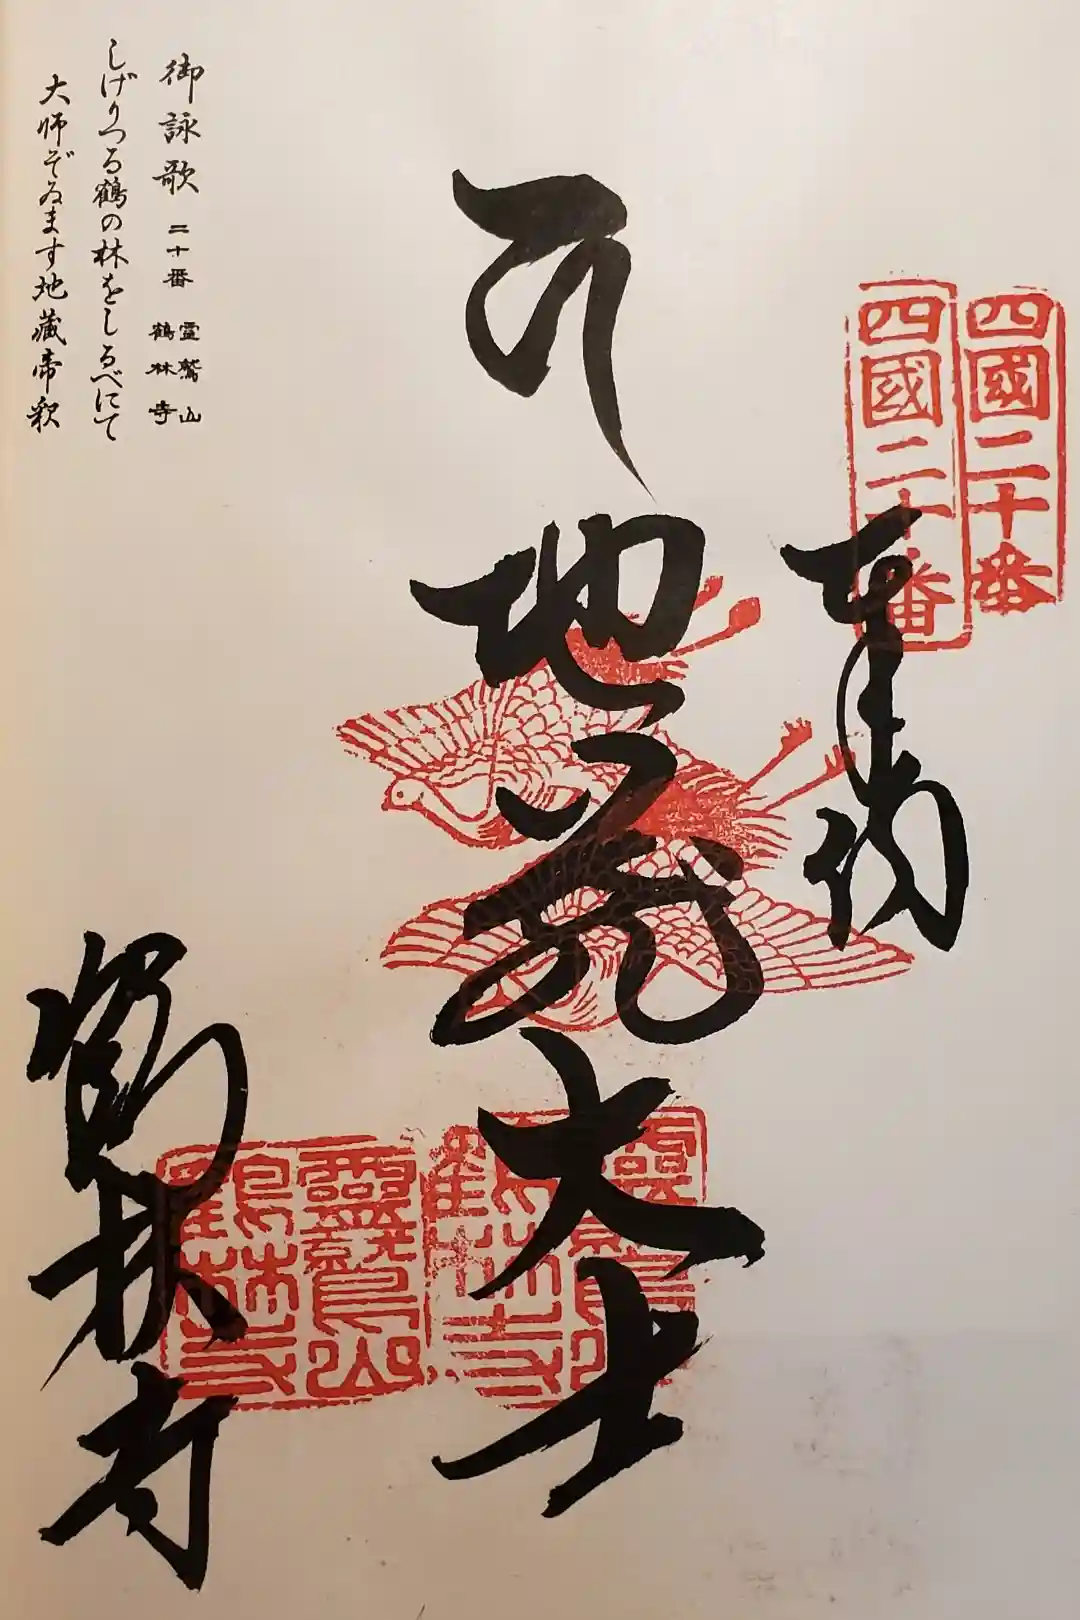 四國二十番
四國二十番
奉納
地蔵大士
靈鷲山
鶴林寺
靈鷲山
鶴林寺
鶴林寺
御詠歌 二十番 霊鷲山 鶴林寺
しげりつる鶴の林をしるべにて
大師ぞゐます地蔵帝釈